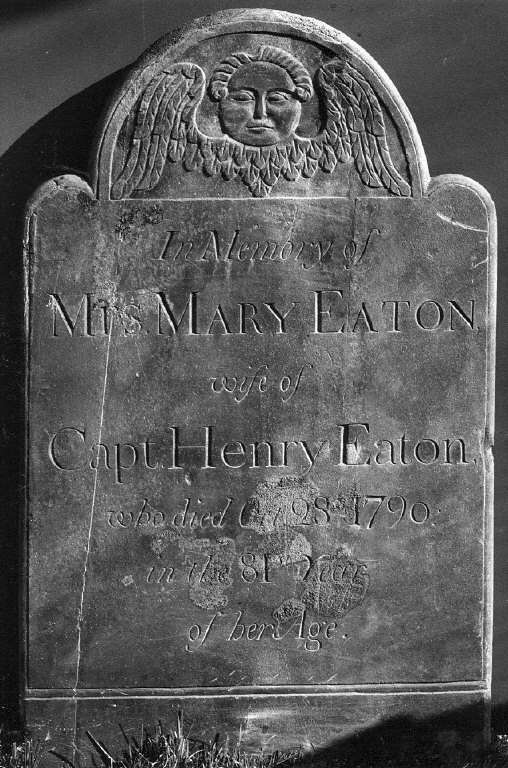 In Memory of
Mrs. MARY EATON,
wife of
Capt. Henry Eaton,
who died Oct 28th 1790:
in the 81st Year
of her Age.